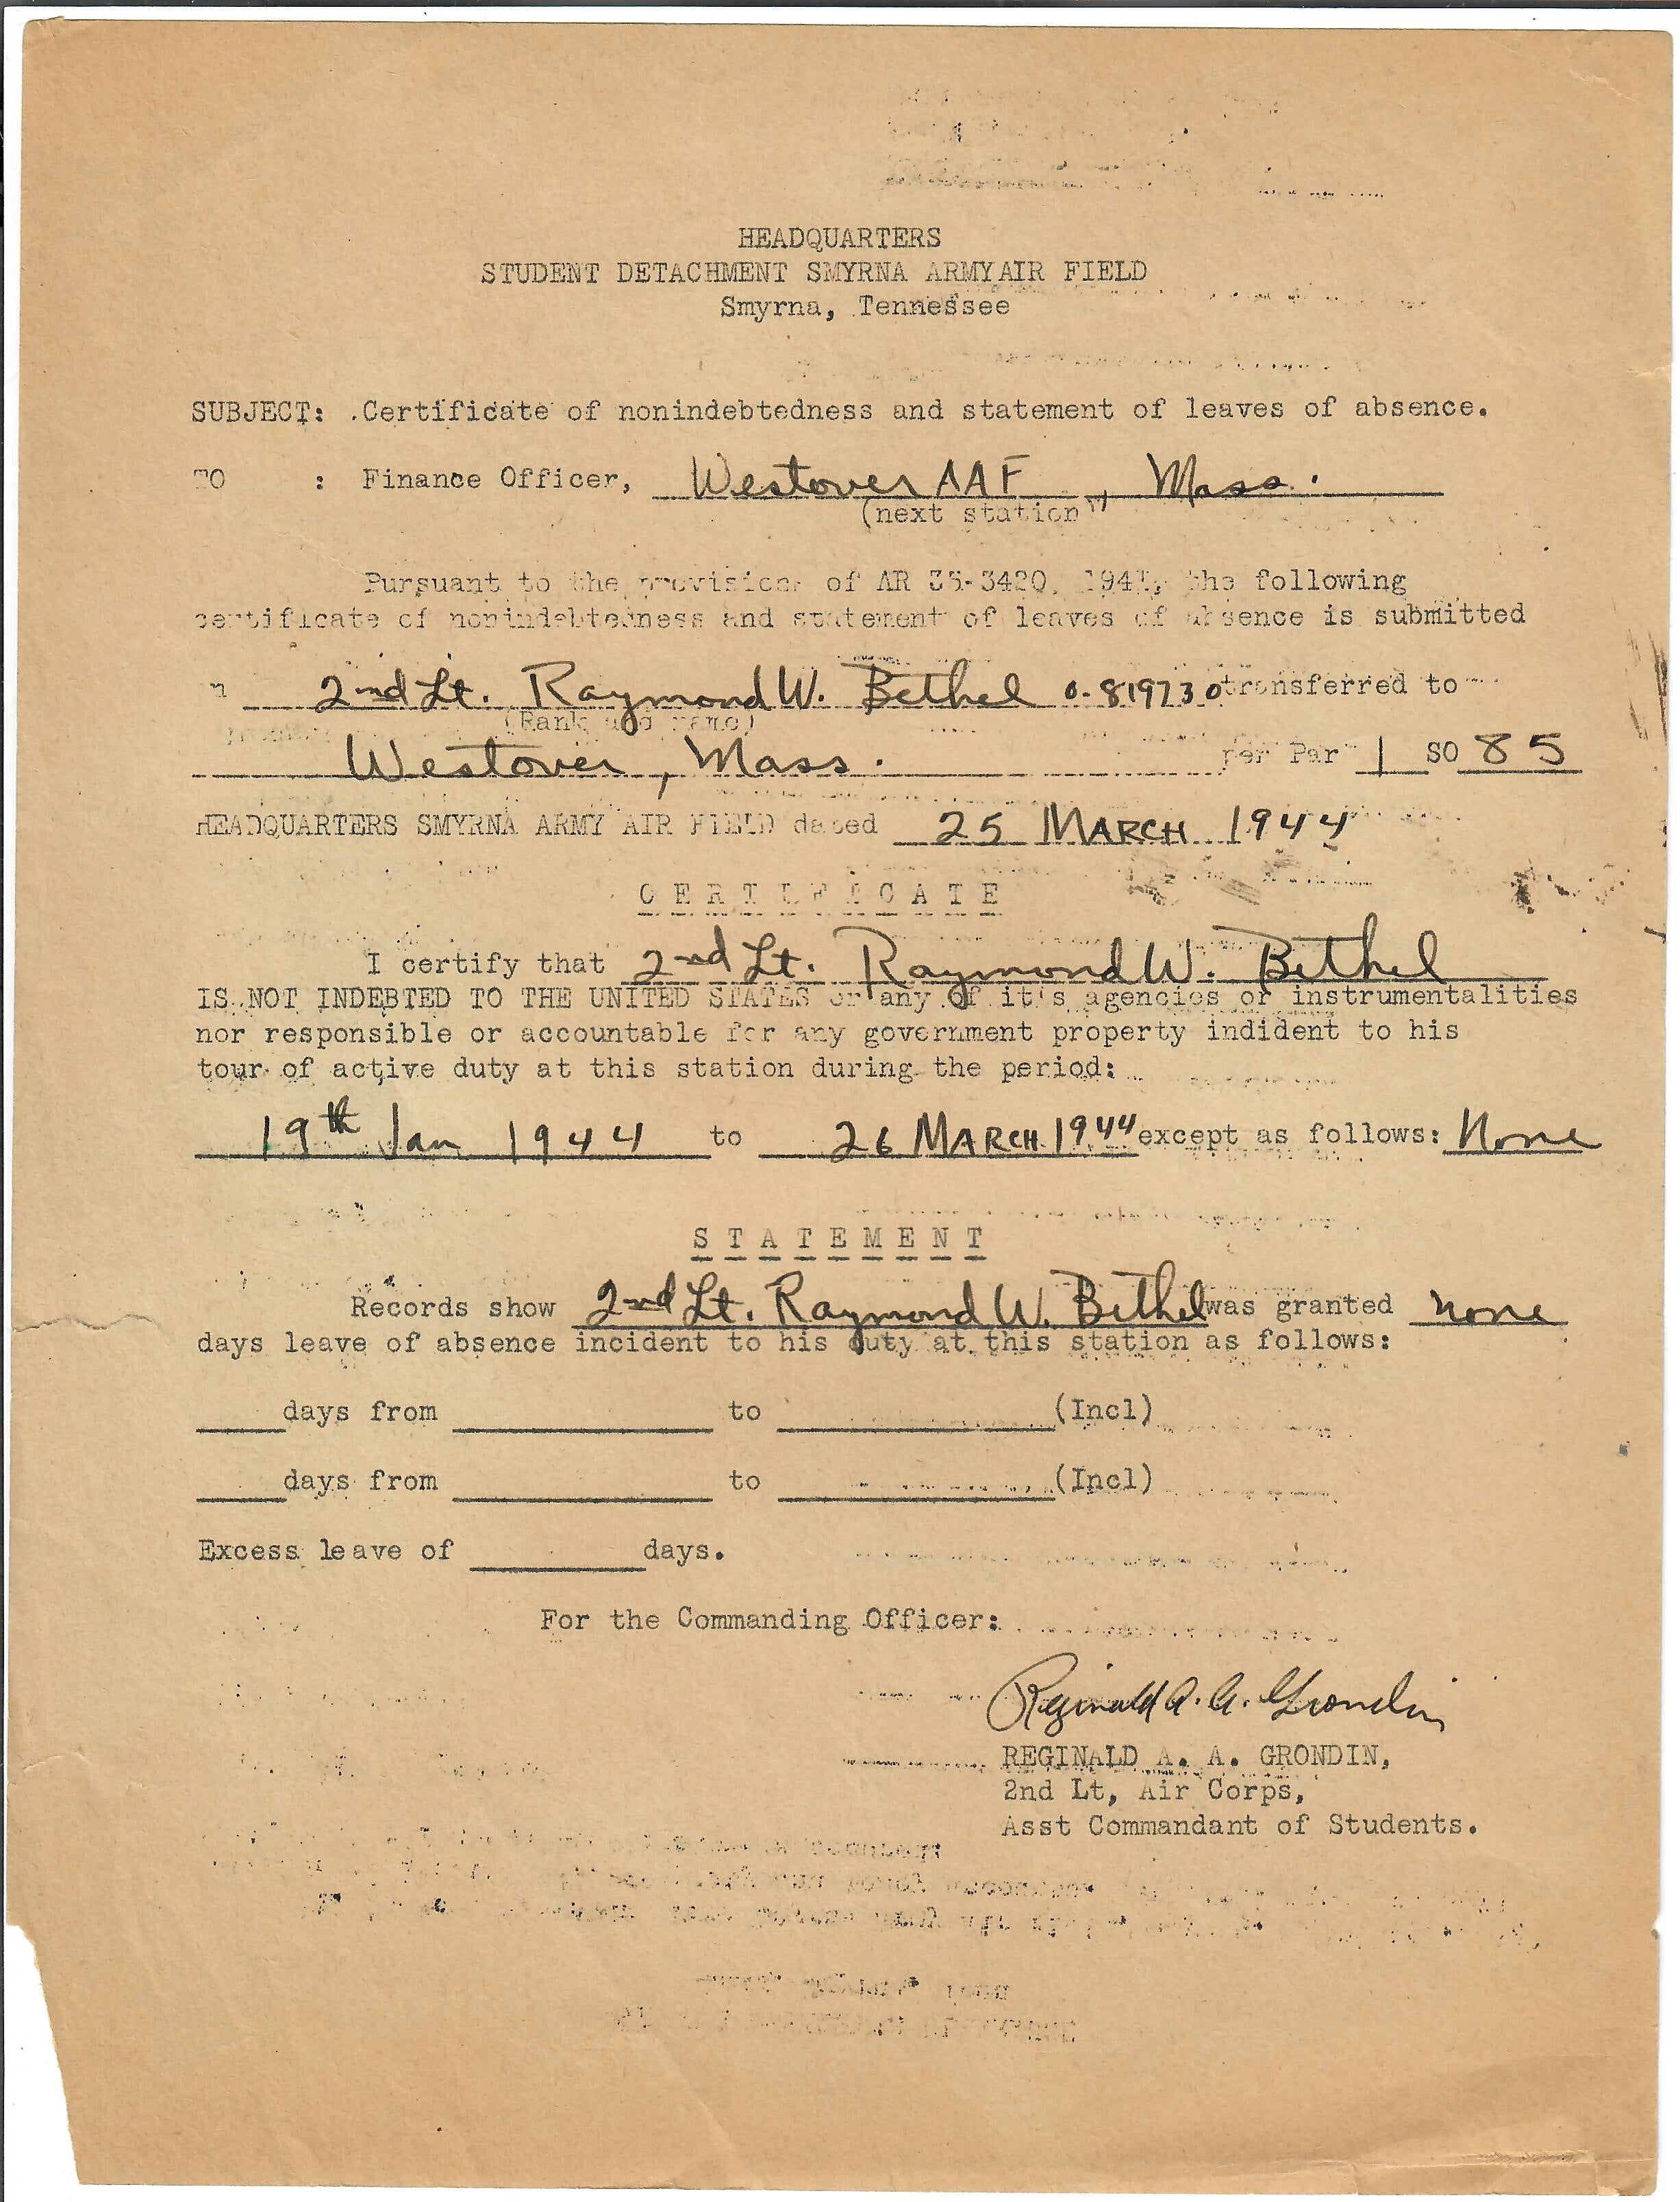 HEADQUARTERS
STUDENT DETACHMENT SMYRNA ARMY AIR FIELD
Smyrna, Tennessee
SUBJECT: Certificate of nonindebtedness and statement of leaves of absence.
TO : Finance Officer, Westover AAF, Mass.
(next station)
Pursuant to the provisions of AR 35-3420, the following
certificate of nonindebtedness and statement of leaves of absence is submitted
2nd Lt. Raymond W. Bethel 0-819730 transferred to
(Rank and name)
Westover, Mass. per Par 1 SO 85
HEADQUARTERS SMYRNA ARMY AIR FIELD dated 25 MARCH 1944
C E R T I F I C A T E
I certify that 2nd Lt. Raymond W. Bethel
IS NOT INDEBTED TO THE UNITED STATES or any of it's agencies or instrumentalities
nor responsible or accountable for any government property indident to his
tour of active duty at this station during the period:
19th Jan 1944 to 26 MARCH 1944 except as follows: None
S T A T E M E N T
Records show 2nd Lt. Raymond W. Bethel was granted none
days leave of absence incident to his duty at this station as follows:
____days from ____ to ____(Incl)
____days from ____ to ____(Incl)
Excess leave of ____days.
For the Commanding Officer:
Reginald A. A. Grondin
REGINALD A. A. GRONDIN,
2nd Lt, Air Corps,
Asst Commandant of Students.